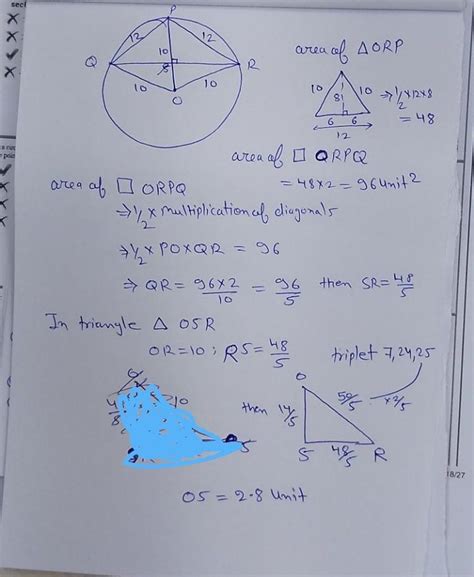 sect
P
12
12
10
Q
8
R
10
10
O
area of △ORP
10
8
10
⇒ 1/2 × 12 × 8
6
6
= 48
12
area of □ ORPQ
= 48×2 = 96 unit²
area of □ ORPQ
⇒ 1/2 × multiplication of diagonals
⇒ 1/2 × PO × QR = 96
⇒ QR = 96×2/10 = 96/5 then SR = 48/5
In triangle △ OSR
OR = 10 ; RS = 48/5
triplet 7,24,25
10
O
50/5
×2/5
then 14/5
S
48/5
R
18/27
OS = 2.8 unit